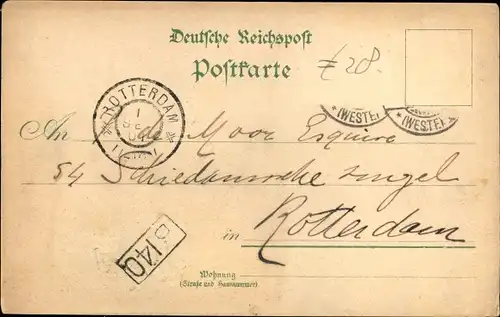 Deutsche Reichspost
Postkarte
£ 28.
ROTTERDAM
1
(WESTF)
(WESTF)
An de Moor Esquire
54 Schiedamsche singel
in Rotterdam
D.140
Wohnung
(Straße und Hausnummer)